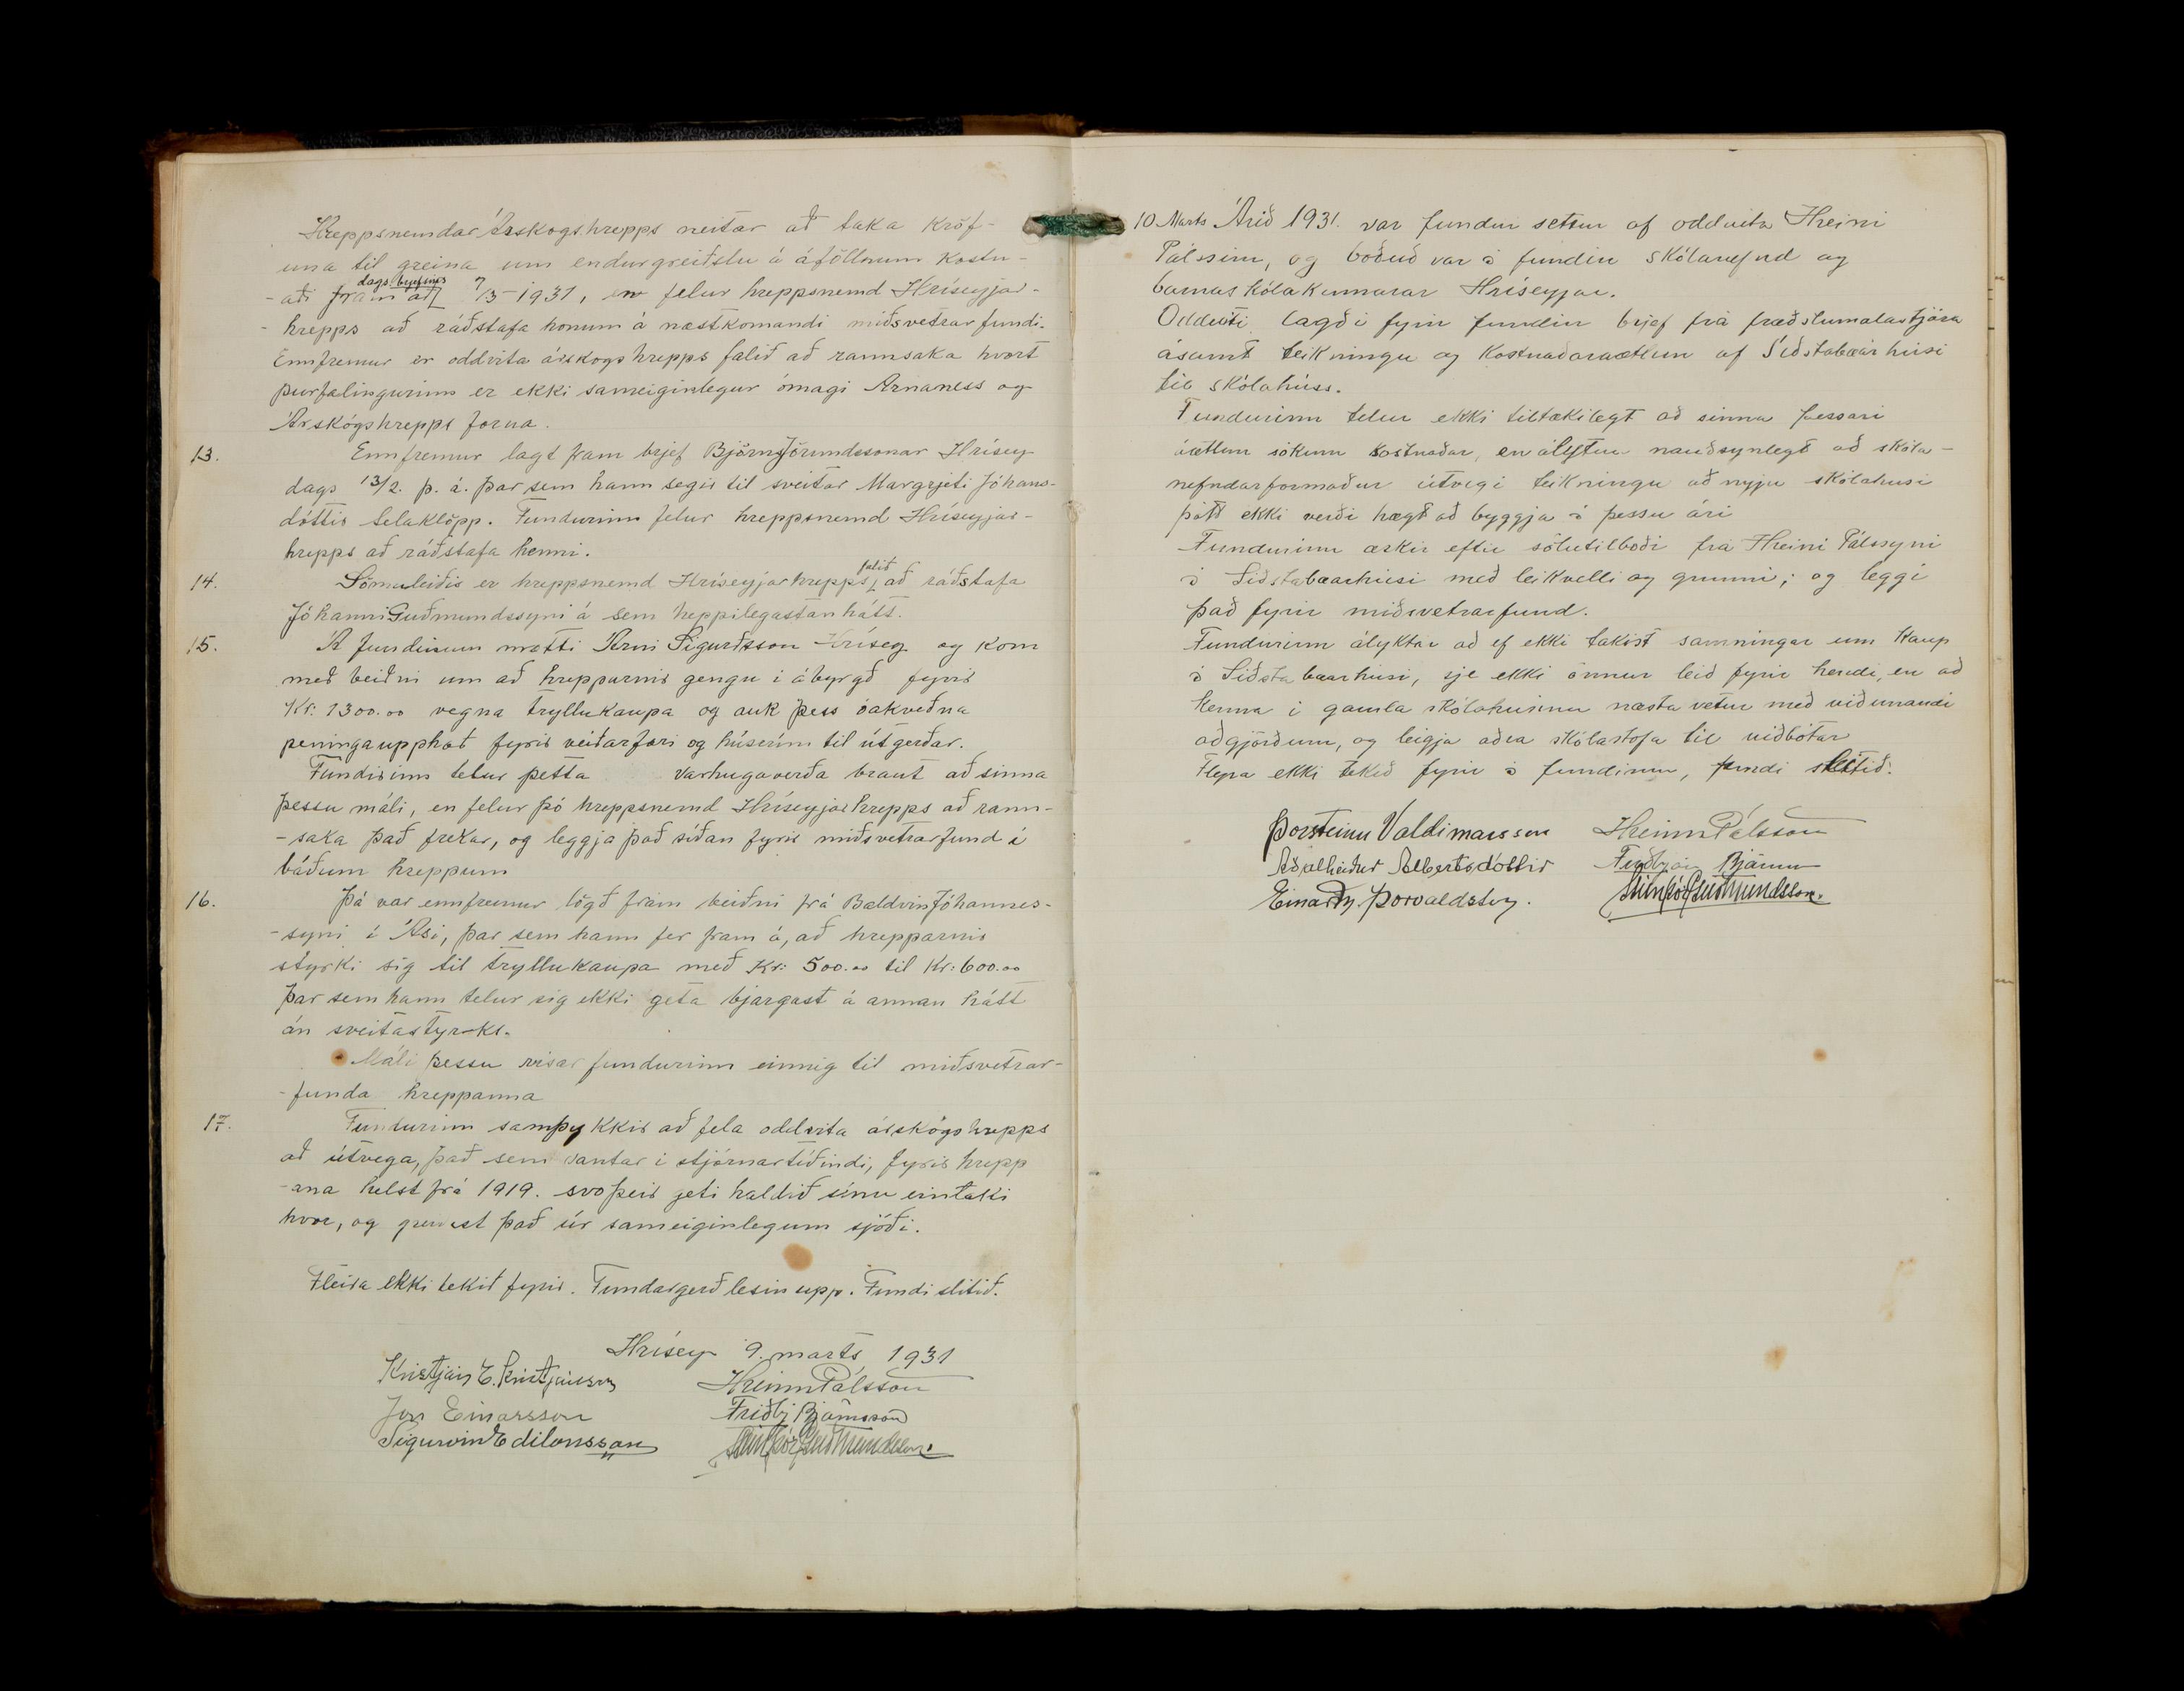 Hreppsnemdar Árskogshrepps neitar að taka kröf-
una til greina um endurgreiðslu á áföllnum kostn-
-aði fram að dags. brjefsins 7/3-1931, en felur hreppsnemd Hríseyjar-
-hrepps að ráðstafa honum á næstkomandi miðsvetrarfundi.
Ennfremur er oddvita árskogshrepps falið að rannsaka hvort
þurfalingurinn er ekki sameiginlegur ómagi Arnaness og
Árskógshrepps forna.
13. Ennfremur lagt fram brjef Björns Jörundssonar Hrísey
dags 13/2. þ. á. þar sem hann segir til sveitar Margrjeti Jóhanns-
dóttir Selaklöpp. Fundurinn felur hreppsnemd Hríseyjar-
hrepps að ráðstafa henni.
14. Sömuleiðis er hreppsnemd Hríseyjarhrepps falið að ráðstafa
Jóhanni Guðmundssyni á sem heppilegastan hátt.
15. Á fundinum mætti Árni Sigurðsson Hrísey og kom
með beiðni um að hrepparnir gengu i ábyrgð fyrir
Kr: 1300.00 vegna tryllukaupa og auk þess óakveðna
peningaupphæð fyrir veiðarfæri og húsrúm til útgerðar.
Fundirinn telur þetta varhugaverða braut að sinna
þessu máli, en felur þó hreppsnemd Hríseyjarhrepps að rann-
-saka það frekar, og leggja það síðan fyrir miðsvetrarfund í
báðum hreppum
16. Þá var ennfremur lögð fram beiðni frá Baldvin Jóhannes-
-syni í Ási, þar sem hann fer fram á, að hrepparnir
styrki sig til tryllukaupa með Kr: 500.00 til Kr: 600.00
þar sem hann telur sig ekki geta bjargast á annan hátt
án sveitastyrks.
Máli þessu vísar fundurinn einnig til miðsvetrar-
-funda hreppanna
17. Fundurinn samþykkir að fela oddvita árskógshrepps
að útvega, það sem vantar i stjórnartíðindi, fyrir hrepp
-ana helst frá 1919. svo þeir geti haldið sínu eintaki
hvor, og það úr sameiginlegum sjóði.
Fleira ekki tekið fyrir. Fundargerð lesin upp. Fundi slitið.
Hrísey 9. marts 1931
Kristján E. Kristjánsson Hreinn Pálsson
Jón Einarsson Friðbj Björnsson
Sigurvin Edilonsson Steinþór Guðmundsson.
10 Marts Árið 1931. var fundur settur af oddvita Hreini
Pálssini, og boðuð var á fundin skólanefnd og
barnaskólakennarar Hríseyjar.
Oddviti lagði fyrir fundin brjef frá fræðslumalastjóra
ásamt teikningu og kostnaðaraætlun af Sídstabæarhúsi
til skólahúss.
Fundurinn telur ekki tiltækilegt að sinna þessari
áætlun sökum kostnaðar, en nauðsynlegt að skóla-
nefndarformaður útvegi teikningu að nyju skólahusi
þótt ekki verði hægt að byggja á þessu ári
Fundurinn æskir eftir sölutilboði frá Hreini Pálssyni
á Sídstabæarhúsi með leikvelli og grunni; og leggi
það fyrir miðsvetrarfund.
Fundurinn ályktar að ef ekki takist samningar um kaup
á Sídstabæarhúsi, sje ekki önnur leið fyrir hendi, en að
kenna i gamla skólahusinu næsta vetur með viðunandi
aðgjörðum, og leigja aðra skólastofa til viðbótar
Fleyra ekki tekið fyrir á fundinum, fundi slitið.
Þorsteinn Valdimarsson Hreinn Pálsson
Aðalheiður Albertsdóttir Friðbjörn Björnss
Einar Þorvaldsson. Steinþór Guðmundsson.